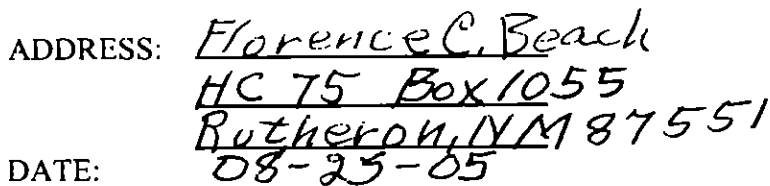 ADDRESS: Florence C. Beach
HC 75 Box 1055
Rutheron, NM 87551
DATE: 08-25-05